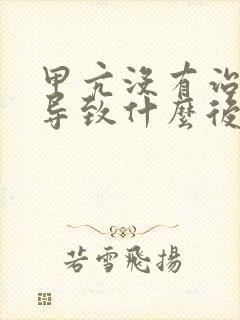 甲亢没有
导致什麼後
若雪飛揚